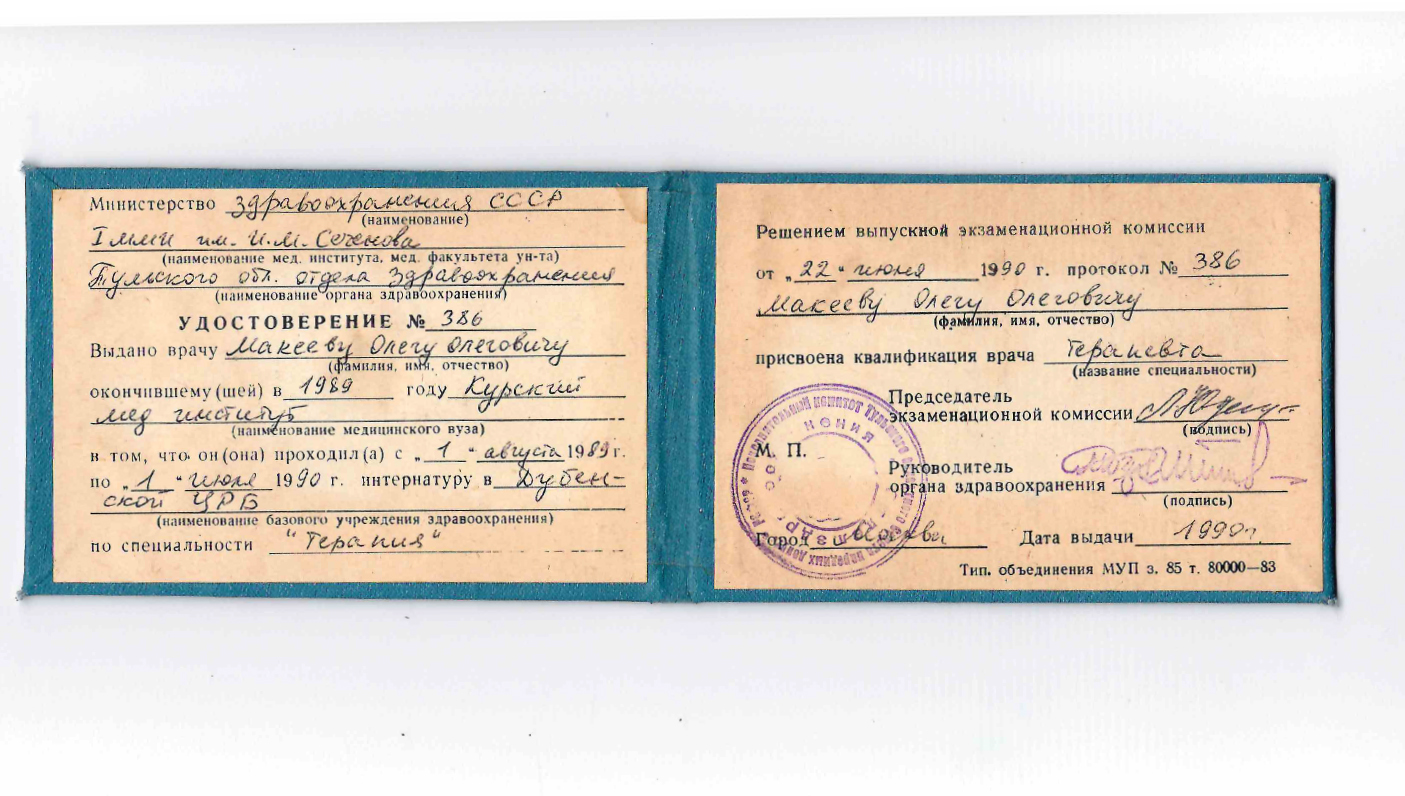 Министерство здравоохранения СССР
(наименование)
I ММИ им. И.М. Сеченова
(наименование мед. института, мед. факультета ун-та)
Тульского обл. отдела здравоохранения
(наименование органа здравоохранения)
УДОСТОВЕРЕНИЕ № 386
Выдано врачу Макееву Олегу Олеговичу
(фамилия, имя, отчество)
окончившему(шей) в 1989 году Курский
мед институт
(наименование медицинского вуза)
в том, что он(она) проходил(а) с „1“ августа 1989 г.
по „1“ июля 1990 г. интернатуру в Дубен-
ской ЦРБ
(наименование базового учреждения здравоохранения)
по специальности "Терапия"
Решением выпускной экзаменационной комиссии
от „22“ июня 1990 г. протокол № 386
Макееву Олегу Олеговичу
(фамилия, имя, отчество)
присвоена квалификация врача терапевта
(название специальности)
Председатель
экзаменационной комиссии
(подпись)
М. П.
Руководитель
органа здравоохранения
(подпись)
Город Москва Дата выдачи 1990г.
Тип. объединения МУП з. 85 т. 80000—83
Исполнительный комитет Тульского областного Совета народных депутатов